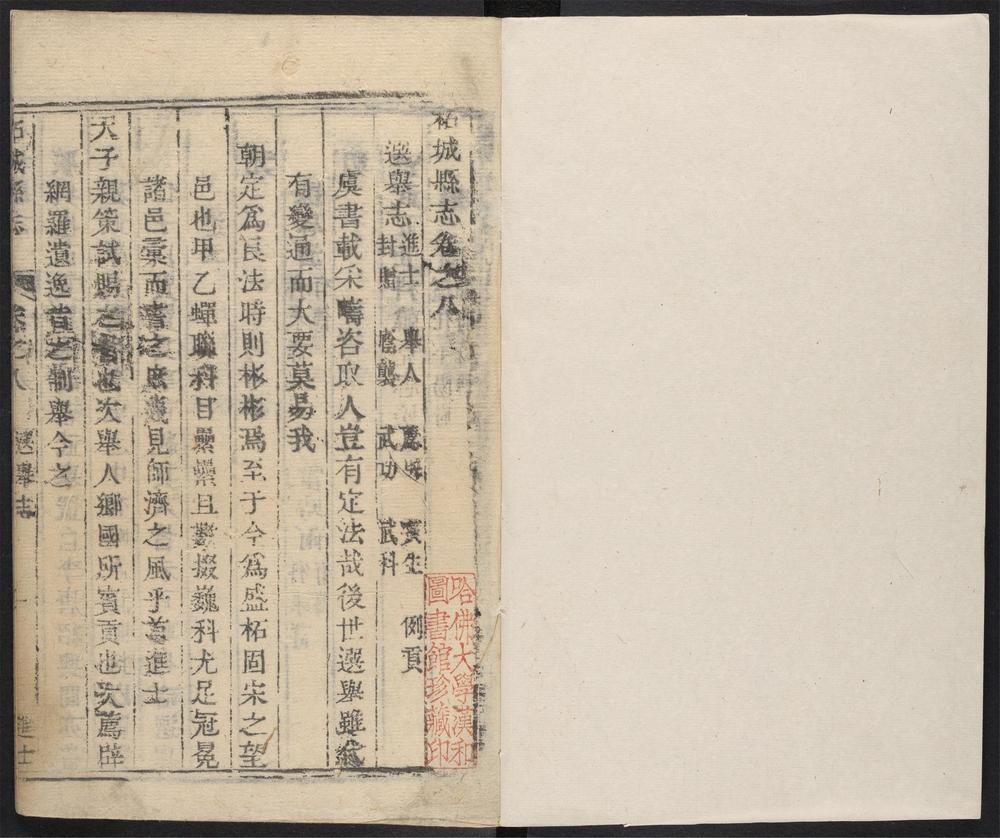 柘城縣志卷之八
選舉志 進士 舉人 薦辟 貢生 例貢
封贈 廕襲 武功 武科
虞書載采疇咨取人豈有定法哉後世選舉雖代
有變通而大要莫易我
朝定為良法時則彬彬焉至于今為盛柘固宋之望
邑也甲乙蟬聯科目纍纍且數掇巍科尤足冠冕
諸邑彙而書之庶幾見師濟之風乎首進士
天子親策試賜之者也次舉人鄉國所賓貢也次薦辟
網羅遺逸昔之制舉今之
柘城縣志 卷之八 選舉志 進士
哈佛大學漢和
圖書館珍藏印